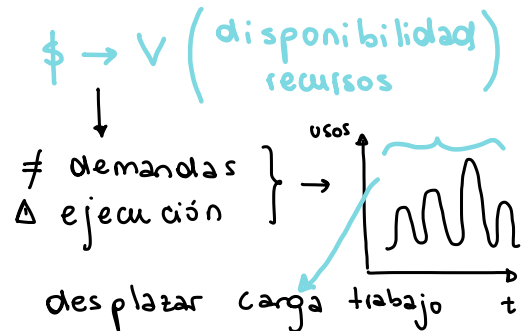 $ → V (disponibilidad recursos)
≠ demandas
Δ ejecución
usos
desplazar carga trabajo
t